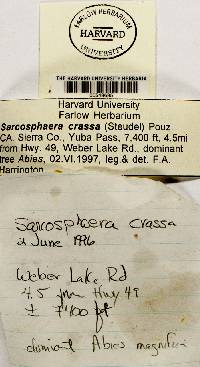 FARLOW HERBARIUM
HARVARD
UNIVERSITY
THE HARVARD UNIVERSITY HERBARIA
Harvard University
Farlow Herbarium
Sarcosphaera crassa (Steudel) Pouz
CA. Sierra Co., Yuba Pass, 7,400 ft, 4.5mi
from Hwy. 49, Weber Lake Rd., dominant
tree Abies, 02.VI.1997, leg.& det. F.A.
Harrington
Sarcosphaera crassa
2 June 1996
Weber Lake Rd
4.5 from Hwy 49
± 7400 ft
dominant Abies magnifica